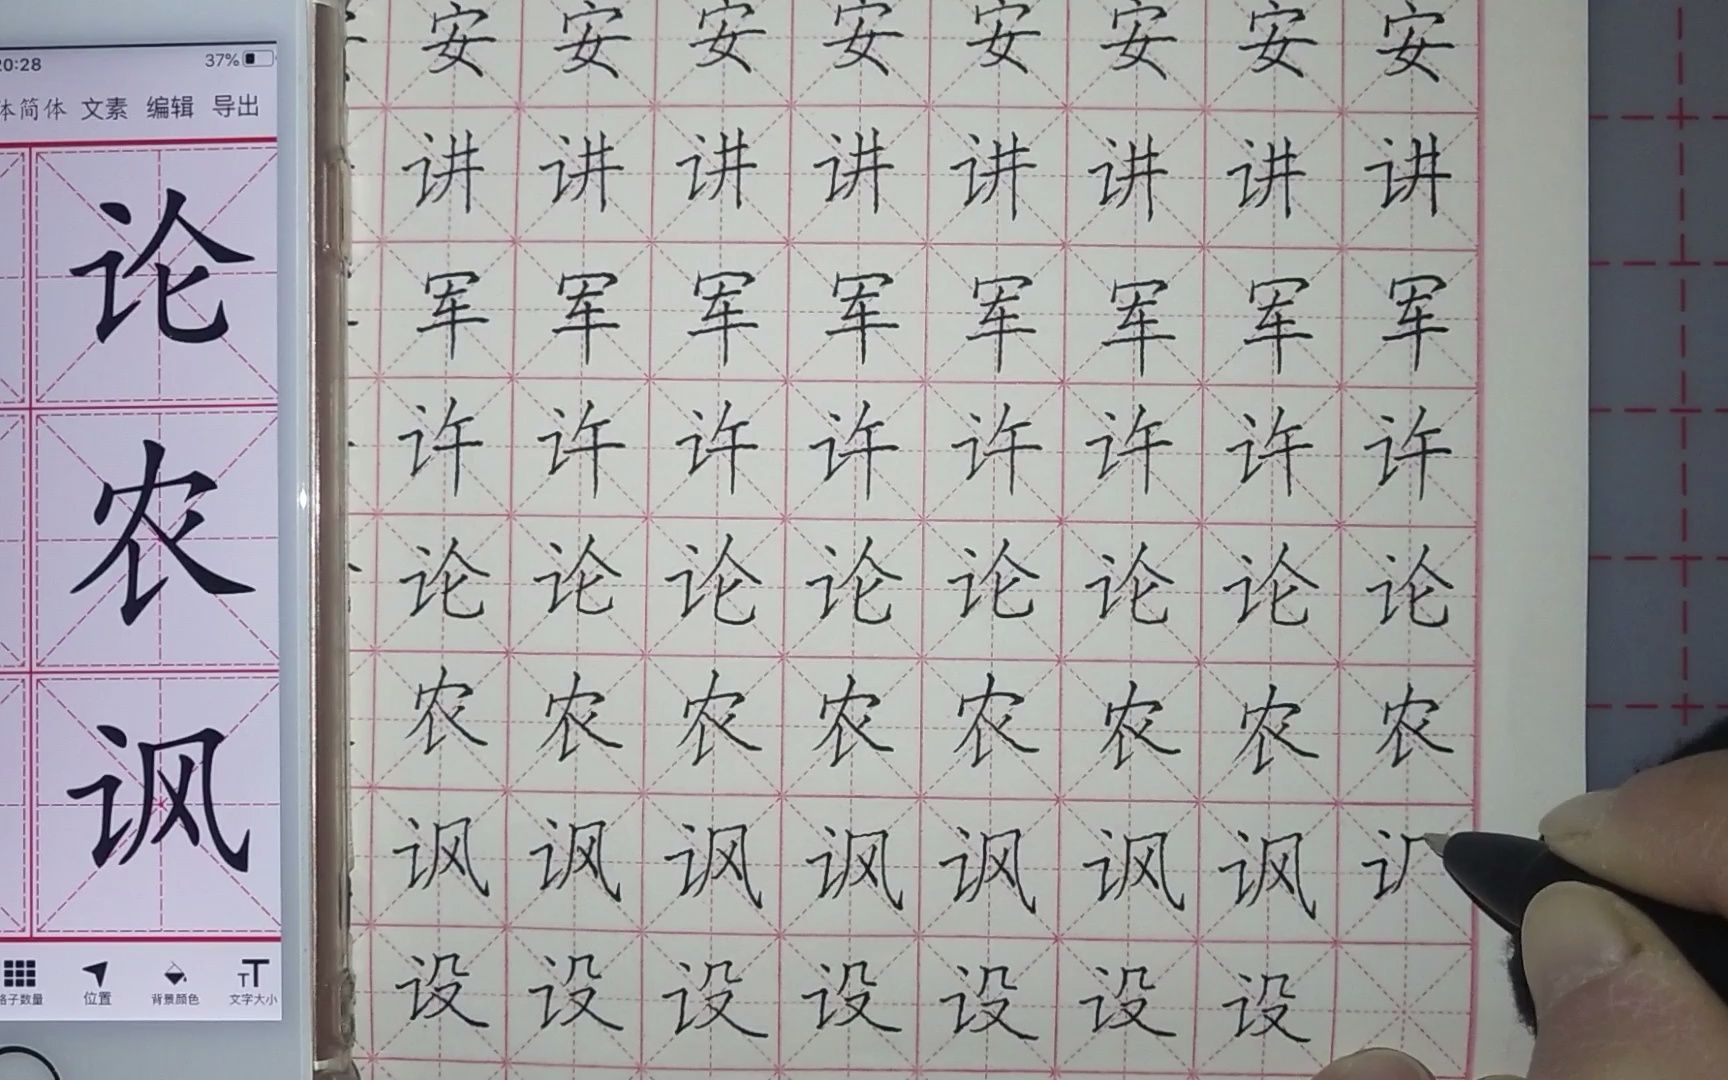 20:28 37%
体简体 文素 编辑 导出
论
农
讽
格子数量 位置 背景颜色 文字大小
安 安 安 安 安 安 安 安
讲 讲 讲 讲 讲 讲 讲 讲
军 军 军 军 军 军 军 军
许 许 许 许 许 许 许 许
论 论 论 论 论 论 论 论
农 农 农 农 农 农 农 农
讽 讽 讽 讽 讽 讽 讽
设 设 设 设 设 设 设